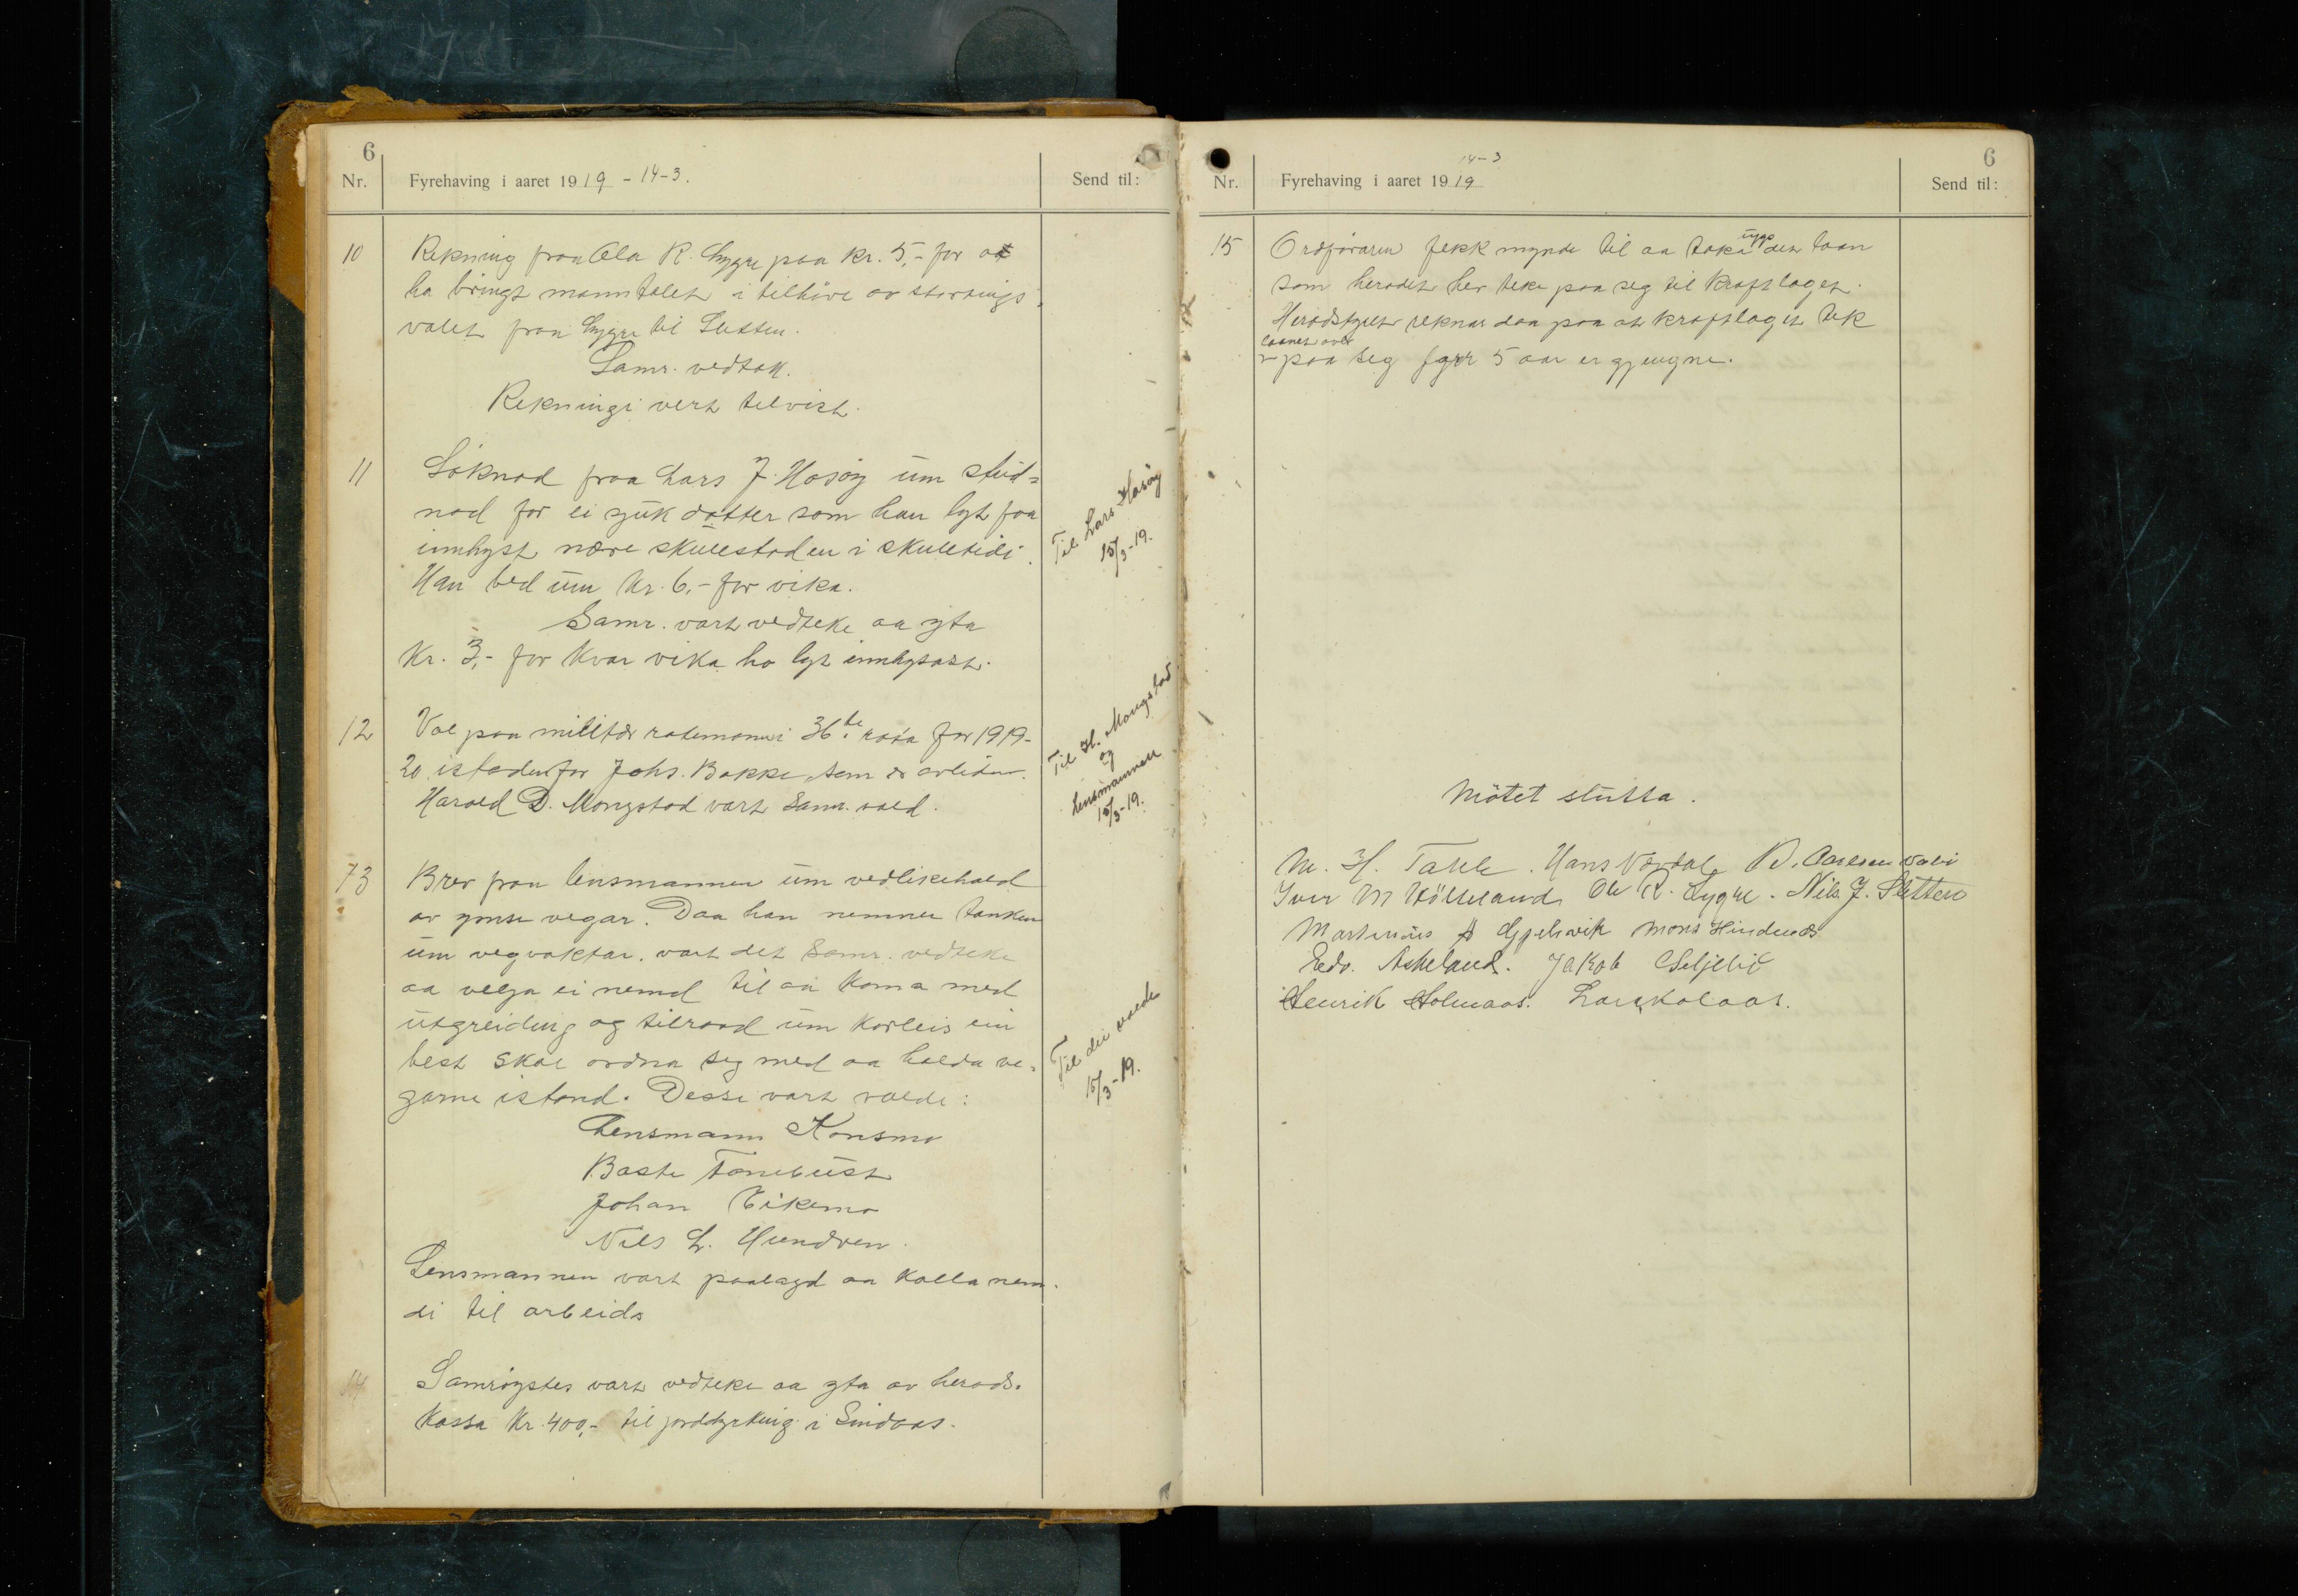 6
Nr.
Fyrehaving i aaret 1919 - 14-3.
Send til:
10
Rekning fraa Ola R. Lygre paa kr. 5,- for at
ha bringt manntalet i tilhöve av stortings
valet fraa Lygre til Sletten.
Samr. vedtak.
Rekningi vert tilvist.
11
Söknad fraa Lars J. Hosöy um stud=
nad for ei sjuk dotter som han lyt faa
innhyst nære skulestaden i skuletidi.
Han bed um kr. 6,- for vika.
Samr. vart vedteke aa yta
Kr. 3,- for kvar vika ho lyt innhysast.
Til Lars Hosöy
15/3-19.
12
Val paa militær rodemann i 36te roda for 1919-
20 istadenfor Johs. Bakke som er avliden.
Harald D. Mongstad vart samr. vald.
Til H. Mongstad
og
Lensmannen
15/3-19.
13
Brev fraa lensmannen um vedlikehald
av ymse vegar. Daa han nemner tanken
um vegvaktar, vart det samr. vedteke
aa velja ei nemd til aa koma med
utgreiding og tilraad um korleis ein
best skal ordna seg med aa halda ve-
garne istand. Desse vart valde:
Lensmann Konsmo
Baste Tonebust
Johan Eikemo
Nils L. Hundven.
Lensmannen vart paalagd aa kalla nem-
di til arbeids
Til dei valde
15/3-19.
14
Samröystes vart vedteke aa yta av herads-
kassa kr. 400,- til jorddyrking i Lindaas.
6
Nr.
14-3
Fyrehaving i aaret 1919
Send til:
15
Ordföraren fekk mynde til aa taka upp det laan
som heradet hev teke paa seg til Kraftlaget.
Heradstyret reknar daa paa at kraftlaget tek
laanet over
paa seg fyrr 5 aar er gjengne.
Mötet slutta.
M. H. Takle. Hans Nordal
Iver M Hölleland Ole R. Lygre. Nils J. Sletten
Martinus Gjelsvik Mons Hindenes
Edv. Askeland. Jakob Seljelid
Henrik Holmaas. Lars Kolaas.